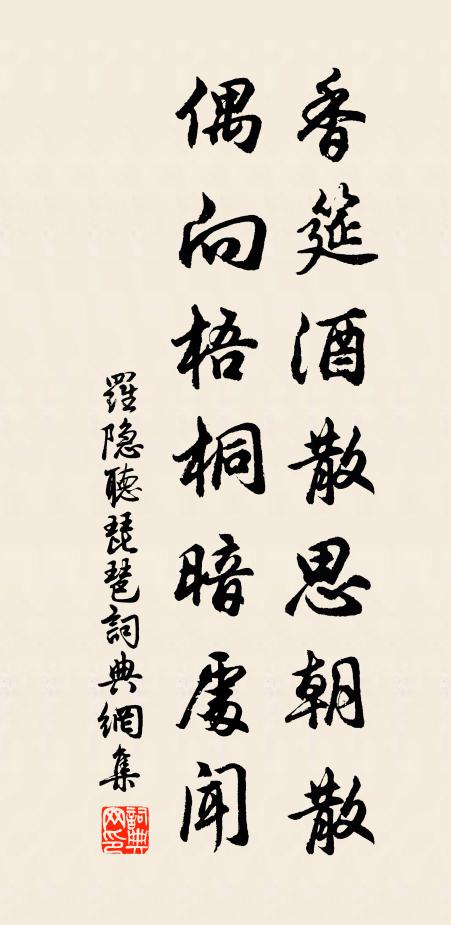 香筵酒散思朝散
偶向梧桐暗處聞
羅隐聽琵琶詞典網集
詞典網印